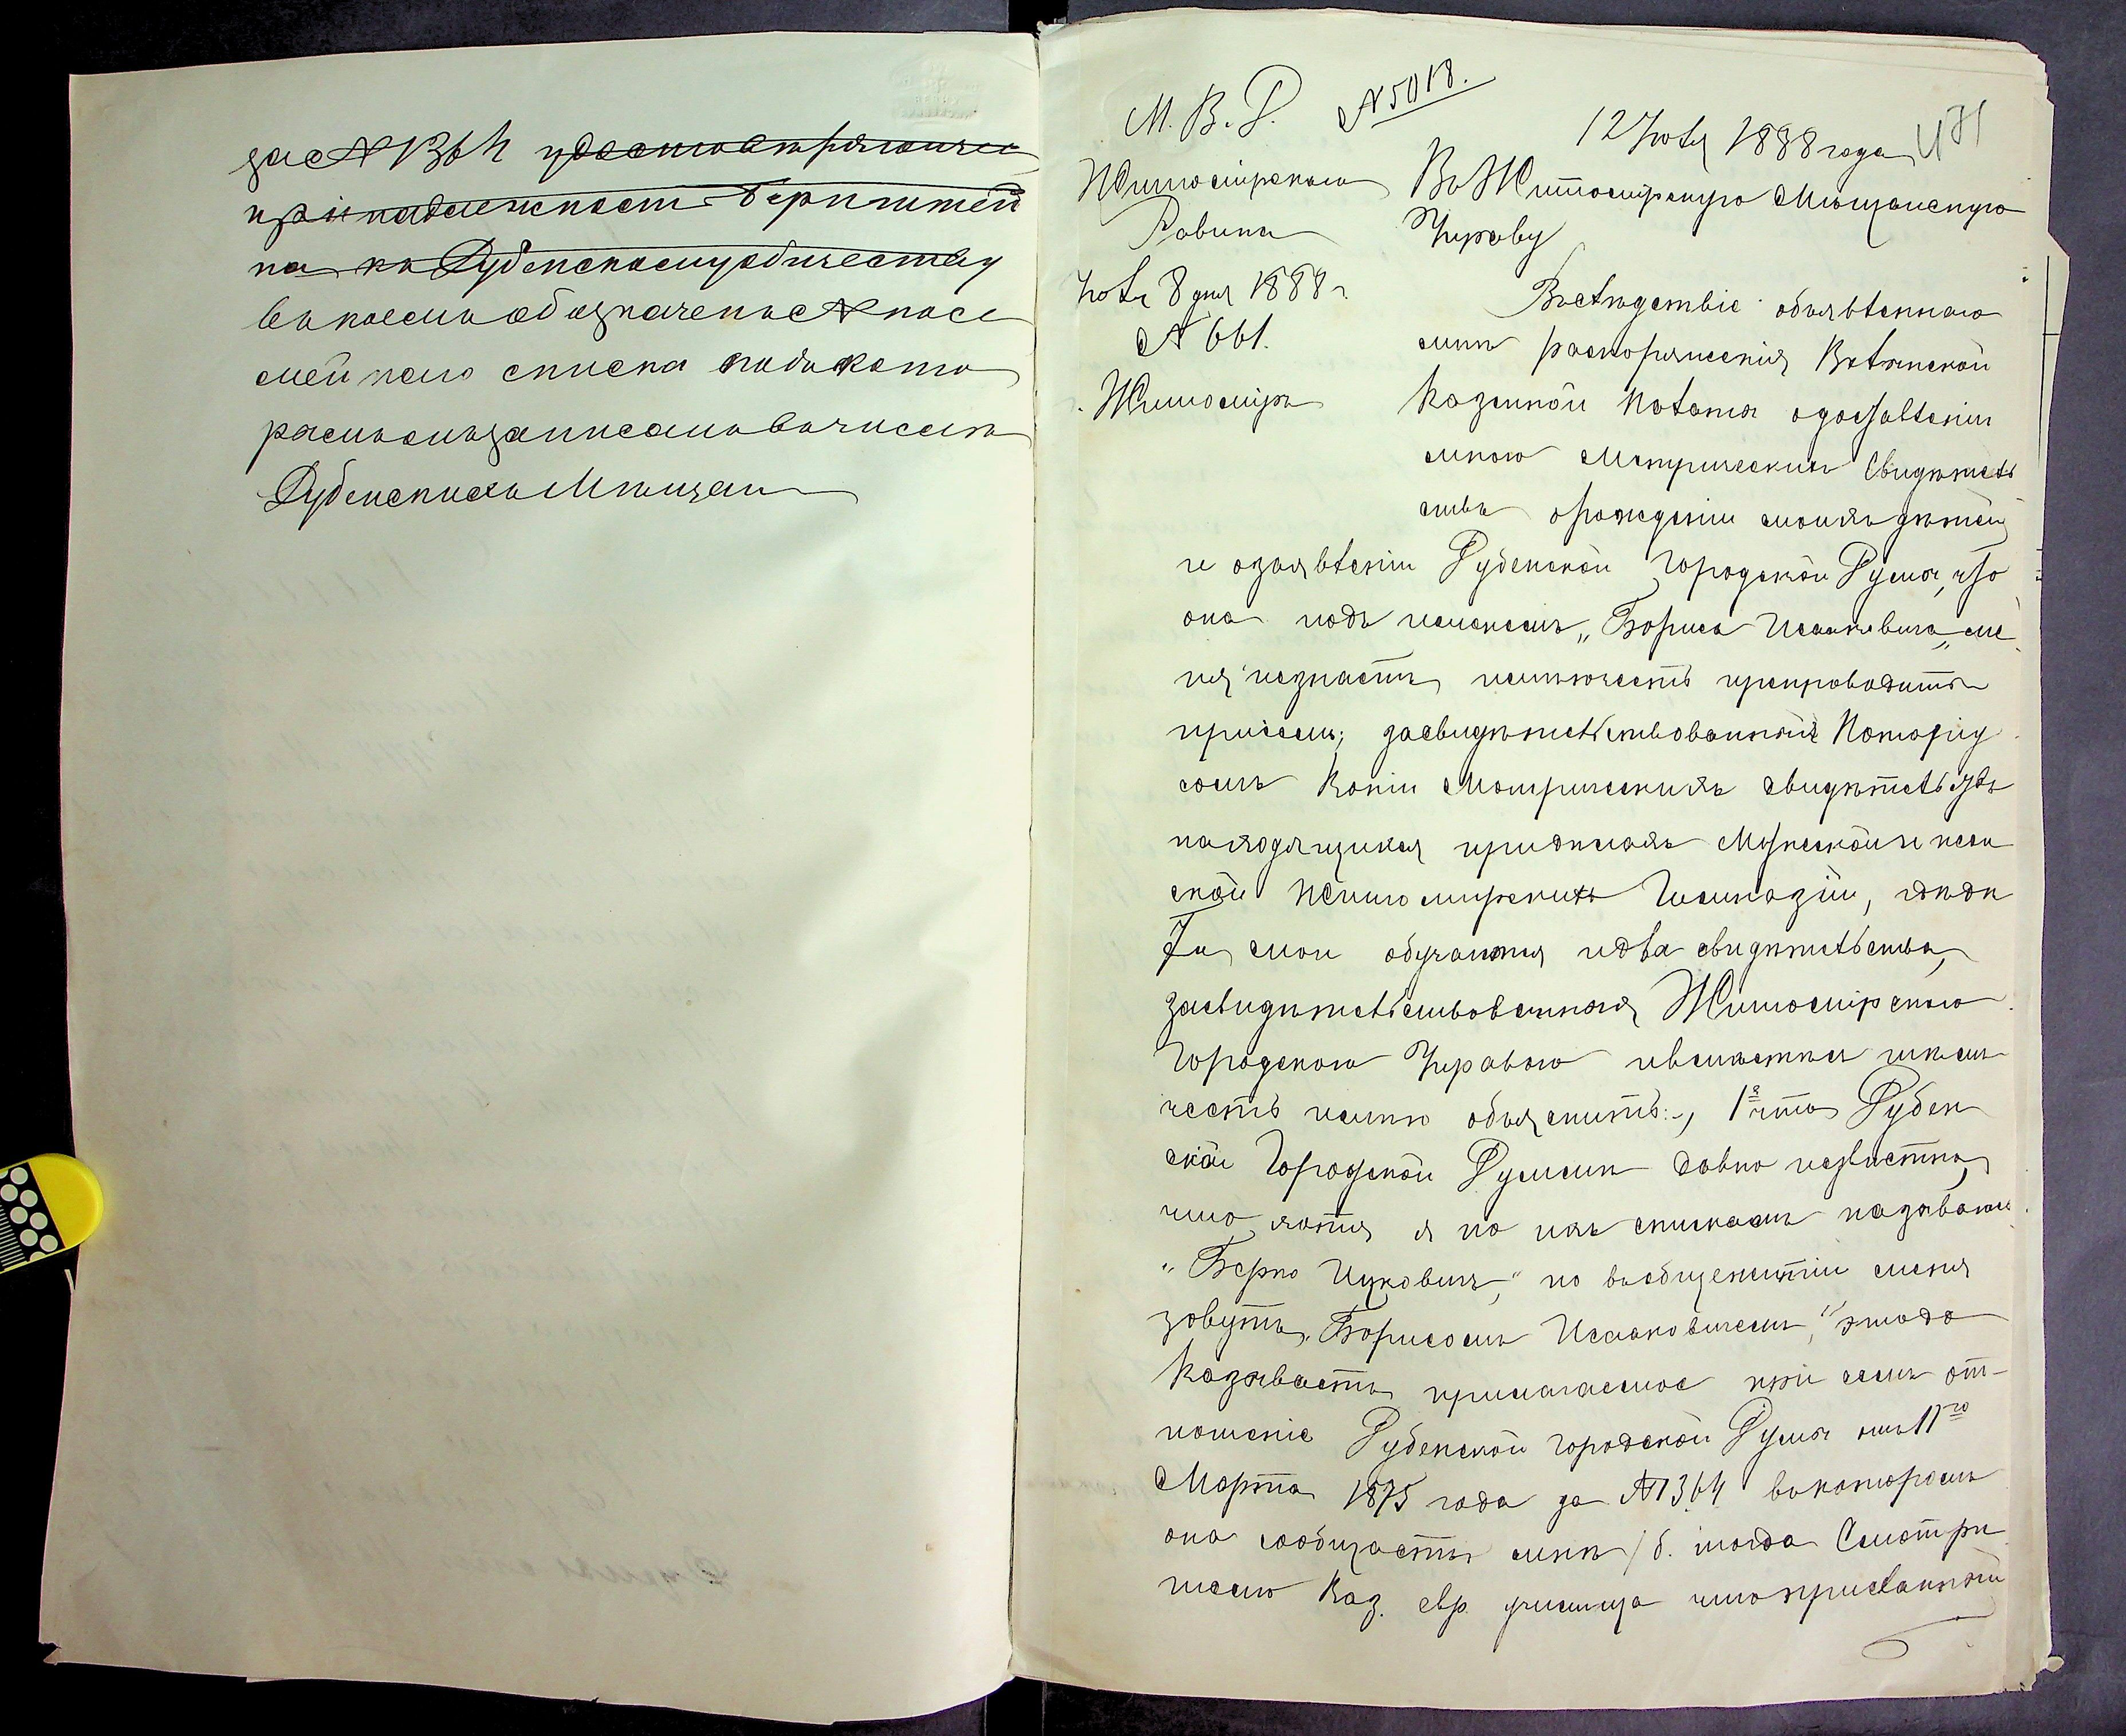 за № 1364 ~~удостоверяющее~~
~~принадлежность Берпштей~~
~~на къ Дубенскому обществу~~
въ коемъ обозначенъ № посе
мейнаго списка подъ кото
рымъ онъ записанъ въ числѣ
Дубенскихъ Мѣщанъ
М. В. Д.
№ 5018.
Житомірскаго
Равина
Іюля 8 дня 1888 г.
№ 661.
Житоміръ
12 Іюля 1888 года
471
Въ Житомірскую Мѣщанскую
Управу
Вслѣдствіе объявленнаго
мнѣ распоряженія Волынской
Казенной Палаты о доставленіи
мною Метрическихъ Свидѣтель
ствъ о рожденіи моихъ дѣтей
и о заявленіи Дубенской Городской Думы, что
она подъ именемъ „Бориса Исааковича„ ме
ня незнаетъ имѣю честь препроводить
при семъ; засвидѣтельствованныя Нотаріу
сомъ Копіи Метрическихъ свидѣтельствъ
находящихся при дѣлахъ Мужской и жен
ской Житомирскихъ Гимназіи, гдѣ дѣ
ти мои обучаются и два свидѣтельства,
засвидѣтельствованныя Житомірскою
Городскою Управою и вмѣстѣ съ симъ
честь имѣю объяснить:, 1е что Дубен
ской Городской Думѣ давно извѣстно,
что хотя я по ихъ спискамъ называюсь
„Берко Ицковичъ," но въ общежитіи меня
зовутъ „Борисомъ Исааковичемъ," это до
казываетъ прилагаемое при семъ от-
ношеніе Дубенской Городской Думы отъ 11го
Марта 1875 года за № 1364 въ которомъ
она сообщаетъ мнѣ / б. тогда Смотри
телю Каз. евр. училища что присланный